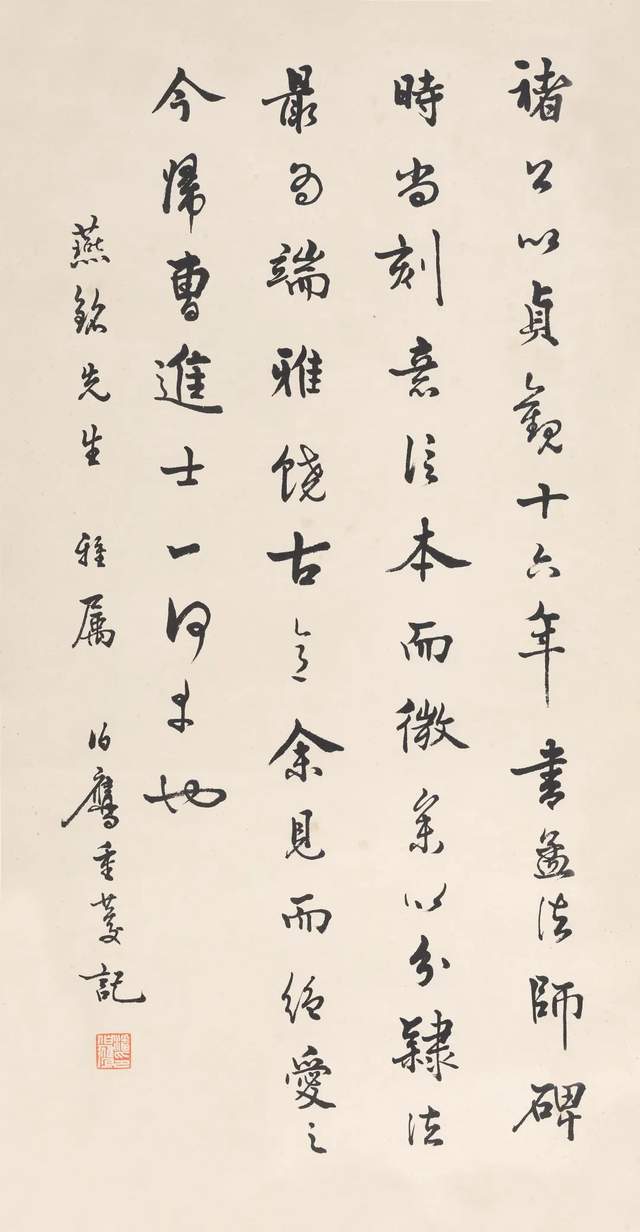 褚公以貞觀十六年書孟法師碑
時尚刻意信本而微參以分隸法
最為端雅饒古意余見而絕愛之
今帰曹進士一何幸也
燕銘先生 雅属 伯鷹重慶記